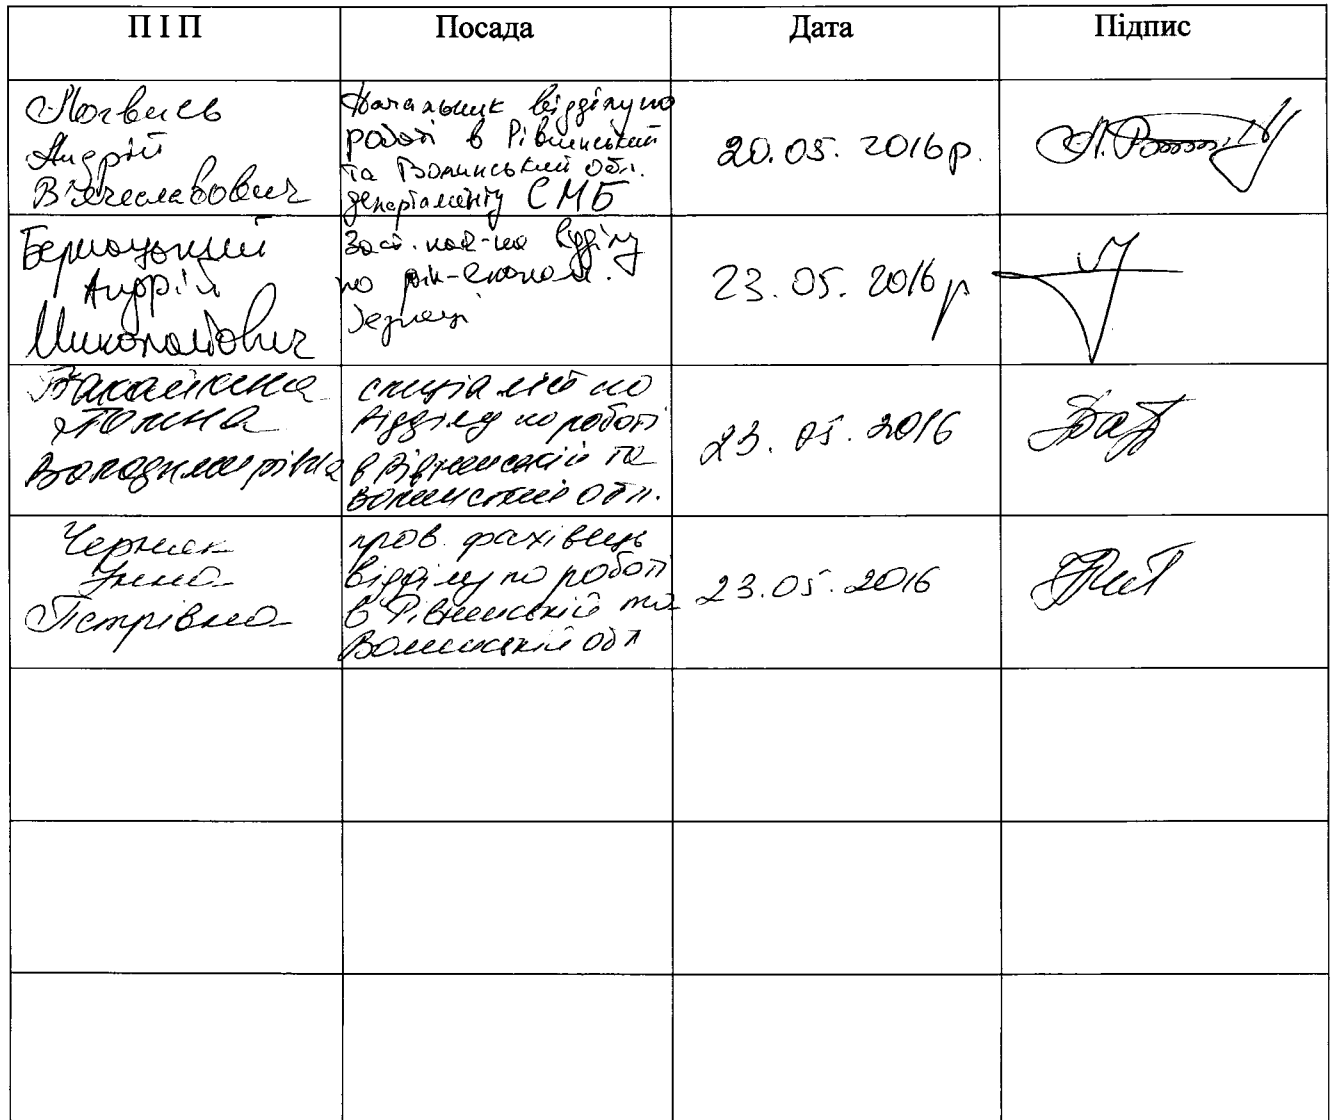 П І П Посада Дата Підпис
Андрій
В'ячеславович
Начальник відділу по
роботі в Рівненській
та Волинській обл.
департаменту СМБ
20.05.2016р.
Андрій
Миколайович
Заст. нач-ка відділу
по
23.05.2016р
Володимирівна
спеціаліст по
відділу по роботі
в Рівненській та
Волинській обл.
23.05.2016
Черняк
Інна
Петрівна
пров. фахівець
відділу по роботі
в Рівненській та
Волинській обл
23.05.2016